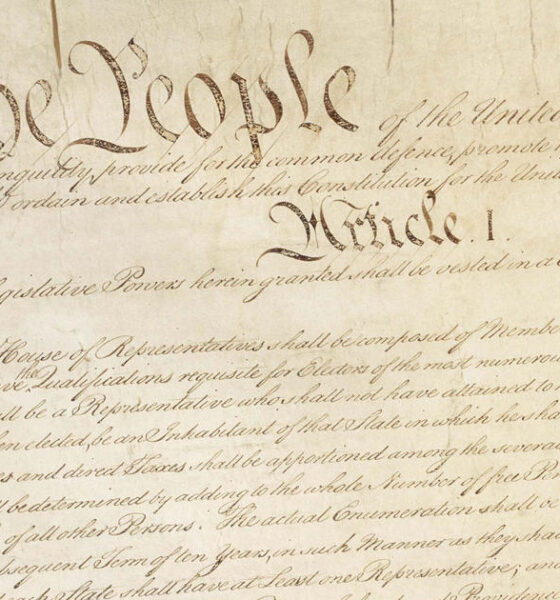 e People of the United
nquility, provide for the common defence, promote
ordain and establish this Constitution for the Unit
Article. I.
gislative Powers herein granted shall be vested in a
House of Representatives shall be composed of Membe
ve the Qualifications requisite for Electors of the most numerou
ll be a Representative who shall not have attained to
en elected, be an Inhabitant of that State in which he sha
es and direct Taxes shall be apportioned among the severa
be determined by adding to the whole Number of free Pe
of all other Persons. The actual Enumeration shall b
bsequent Term of ten Years, in such Manner as they sha
each State shall have at Least one Representative; and
Providence